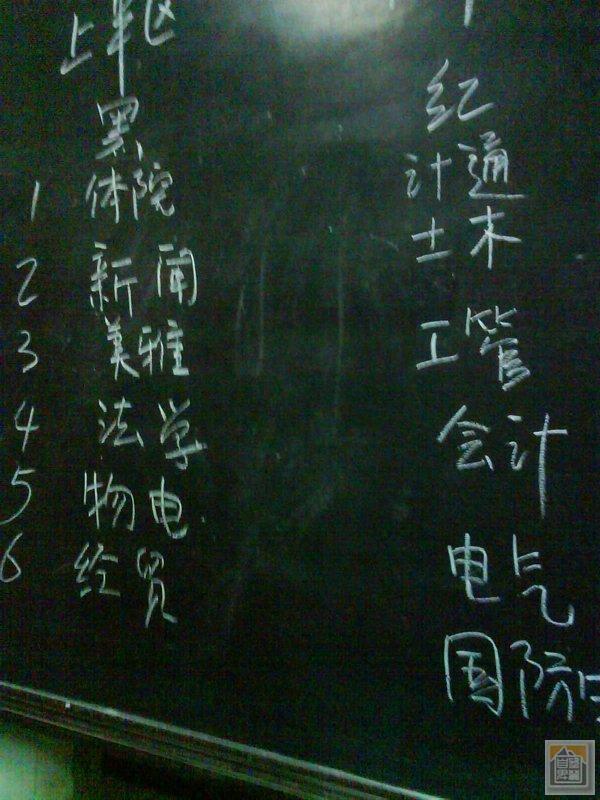 上半区
黑
1 体院
2 新闻
3 美雅
4 法学
5 物电
6 经贸
红
计通
土木
工管
会计
电气
国际